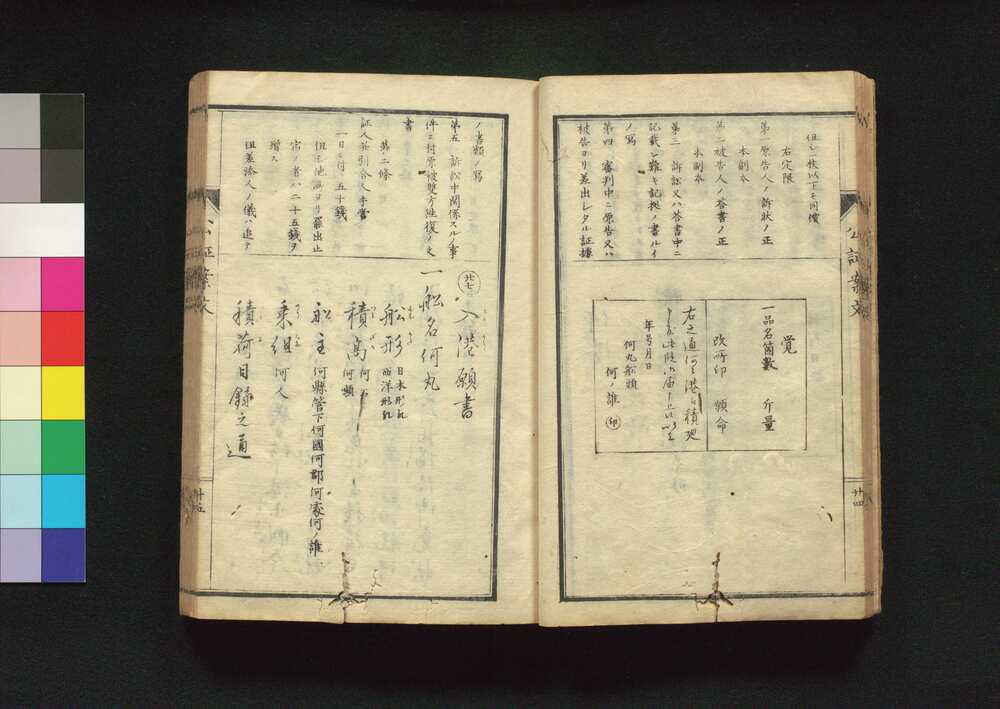 但シ一枚以下モ同償
右定限
第一 原告人ノ訴状ノ正
本副本
第二 被告人ノ答書ノ正
本副本
第三 訴訟又ハ答書中ニ
記載シ難キ記拠ノ書ルイ
ノ寫
第四 審判中ニ原告又ハ
被告ヨリ差出シタル証據
覚
一品名箇數 斤量
改所印 領命
右之通何港ゟ積
年号月日
何丸船頭
何ノ誰 印
公証案文
廿四
ノ書類ノ寫
第五 訴訟中関係スルノ事
件ニ付原被雙方往復ノ文
書
第二條
証人并引合人手當
一日ニ付 五十錢
但シ他縣ヨリ羅出止
宿ノ者ハ二十五錢ヲ
増ス
但差添人ノ儀ハ追テ
廿七 入港願書
一船名何丸
船形 日本形 西洋形
積高 何石 何噸
船主 何縣管下何國何郡何家何ノ誰
乗組 何人
積荷目録之通
公証案文
廿五